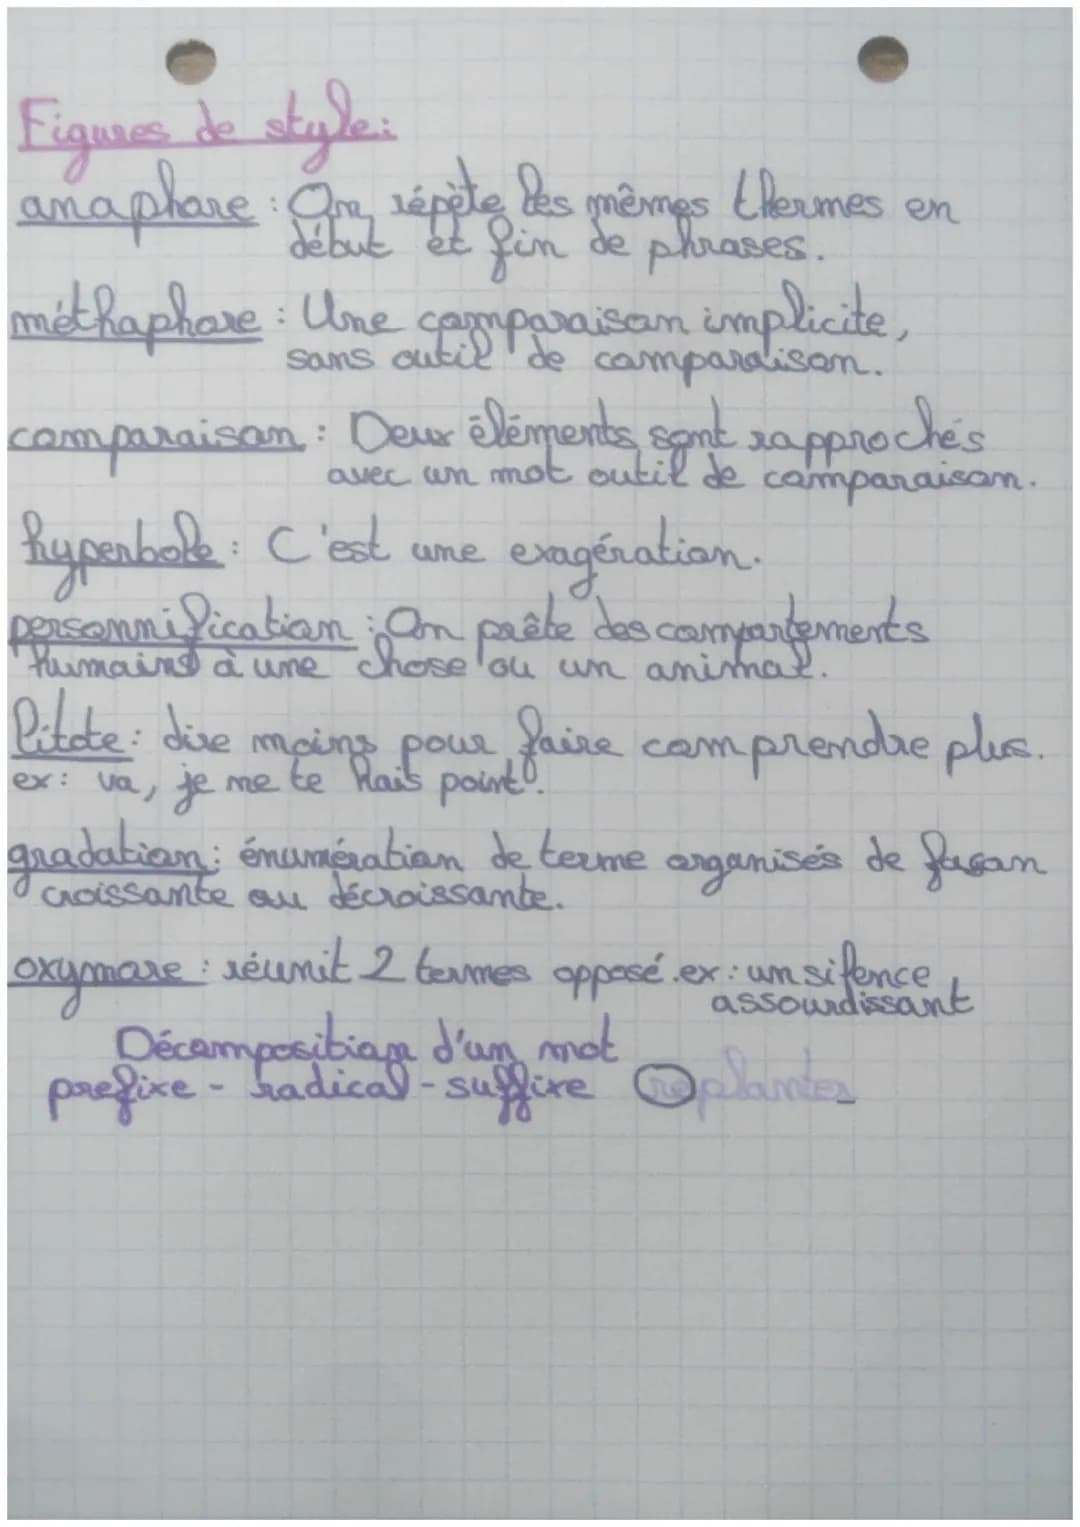 Figures de style:
anaphore : On répète les mêmes thermes en
début et fin de phrases.
méthaphore : Une comparaison implicite,
sans outil de comparaison.
comparaison : Deux éléments sont rapprochés
avec un mot outil de comparaison.
hyperbole : C'est une exagération.
personnification : On prête des comportements
humains à une chose ou un animal.
litote : dire moins pour faire comprendre plus.
ex : va, je me te hais point!
gradation : énumération de terme organisés de façon
croissante ou décroissante.
oxymore : réunit 2 termes opposé. ex : un silence
assourdissant
Décomposition d'un mot
prefixe - radical - suffixe replanter